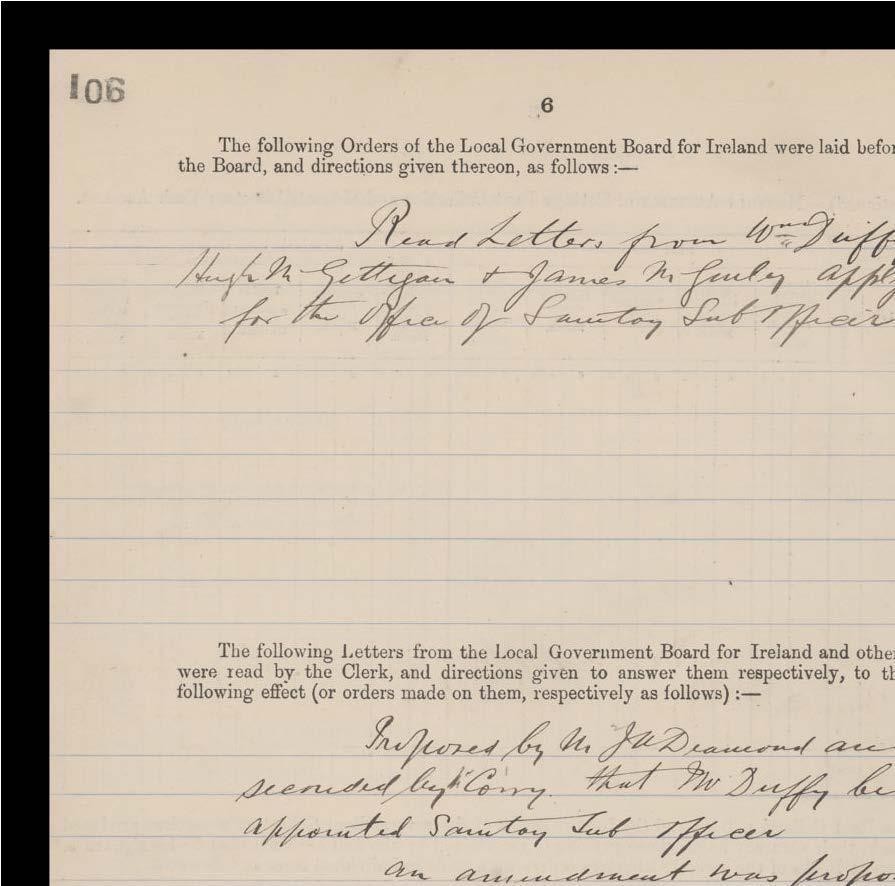 106
6
The following Orders of the Local Government Board for Ireland were laid befor
the Board, and directions given thereon, as follows :—
Read Letters from Wm Duff
Hugh Mc Gettigan + James McGinley apply
for the Office of Sanitay Sub Officer
The following Letters from the Local Government Board for Ireland and other
were read by the Clerk, and directions given to answer them respectively, to th
following effect (or orders made on them, respectively as follows) :—
Proposed by Mr Diamond an
seconded by Mr Corry. that Mr Duffy be
appointed Sanitay Sub Officer
an amendment was propo